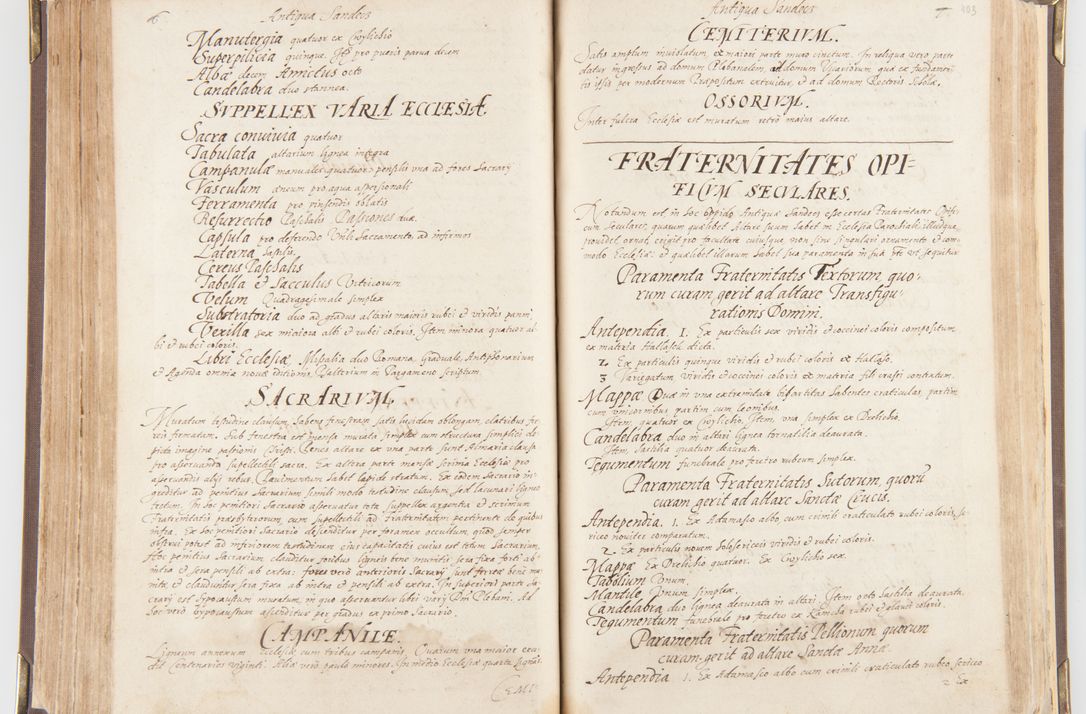 6 Antiqua Sandecz
Manutergia quatuor ex Cwylichio
Superpilicia quinque, Jtem pro pueris parua decem
Albæ decem Amictus octo
Candelabra duo stannea.
SVPPELLEX VARIA ECCLESIÆ
Sacra conuiuia quatuor
Tabulata altarium lignea integra
Campanulæ manuales quatuor pensilis vna ad fores Sacrarij
Vasculum æneum pro aqua aspersionali
Ferramenta pro pinsendis oblatis
Resurrectio Paschalis Passiones duæ.
Capsula pro deferendo Vnli Sacramento, ad infirmos
Laterna hastilis.
Cereus Paschalis
Tabella et Sacculus Vitricorum
Velum Quadragesimale simplex
Substratoria duo ad gradus altaris maioris rubei et viridis panni
Vexilla sex maiora albi et rubei coloris. Jtem minora quatuor al-
bi et rubei coloris.
Libri Ecclesiæ, Missalia duo Romana, Graduale, Antiphonarium
et Agenda omnia nouæ editionis Psalterium in Pargameno scriptum.
SACRARIVM.
Muratum testudine clausum, habens fenestram satis lucidam oblongam, clatribus fer-
reis firmatam. Sub fenestra est mensa murata simplex cum structura simplici de-
picta imagine passionis Christi. Penes altare ex vna parte sunt Almaria clausa
pro asseruanda suppellectili sacra. Ex altera parte mansæ scrinia Ecclesiæ pro
asseruandis alijs rebus. Pauimentum habet lapide stratum. Ex eodem Sacrario in-
greditur ad penitius Sacrarium simili modo testudine clausum, sed lacunari ligneo
tectum. In hoc penitiori Sacrario asseruatur tota suppellex argentea et scrinium
Fraternitatis præsbyterorum, cum supellectili ad Fraternitatem pertinente de quibus
infra. Ex hoc penitiori Sacrario descenditur per foramen occultum, quod semper
obstrui potest ad inferiorem testudinem eius capacitatis cuius est totum Sacrarium.
Hoc penitius Sacrarium clauditur foribus ligneis bene munitis sera fixa forti ab
intra et sera pensili ab extra: fores verò anterioris Sacrarij sunt ferreæ benè mu-
nitæ et clauduntur sera fixa ab intra et pensili ab extra. In superiori parte Sa-
crarij est hypocaustum muratum, in quo asseruantur libri varij Dni Plebani. Ad
hoc verò hypocaustum ascenditur per gradus ex primo Sacrario.
CAMPANILE.
Ligneum annexum Ecclesiæ cum tribus campanis, Quarum vna maior exce-
dit Centenarios viginti. Aliæ verò paulò minores. In medio Ecclesiæ quarta signans
Cemi-
Antiqua Sandecz 7 403
CEMITERIVM.
Satis amplum inuiolatum, ex maiori parte muro cinctum. In reliqua verò parte
datur ingressus ad domum Plebanalem, ad domum Vicariorum quæ ex fundamen-
tis ipsis per modernum Præpositum extruitur, et ad domum Rectoris Scholæ.
OSSORIVM.
Inter fulcra Ecclesiæ est muratum retrò maius altare.
FRATERNITATES OPI-
FICVM SECVLARES.
Notandum est in hoc oppido Antiqua Sandecz esse certas Fraternitates Opifi-
cum Seculares, quarum quælibet Altare suum habet in Ecclesia Parochiali, illudque
prouidet, ornat, erigit pro facultate cuiusque, non sine singulari ornamento et com-
modo Ecclesiæ: et quælibet illarum habet sua paramenta in sua pte vt sequitur.
Paramenta Fraternitatis Textorum quo-
rum curam gerit ad altare Transfigu-
rationis Domini.
Antependia. 1. Ex particulis sex viridis et coccinei coloris compositum,
ex materia Hallasch dicta.
2. Ex particulis quinque viridis et rubei coloris ex Hallaso.
3 Variegatum viridis et coccinei coloris ex materia fili crassi contextum.
Mappæ Duæ in vna extremitate bipartitæ habentes craticulas, partim
cum vnicornibus partim cum leonibus.
Jtem, quatuor ex Cwylichio, Jtem, vna simplex ex Drelichio.
Candelabra duo in altari lignea tornatilia deaurata.
Jtem, hastilia quatuor deaurata.
Tegumentum funebrale pro feretro rubeum simplex.
Paramenta Fraternitatis Sutorum, quorū
curam gerit ad altare Sanctæ Crucis.
Antependia. 1. Ex Adamasco albo, cum crinili craticulato rubei coloris, se-
riceo nouiter comparatum.
2. Ex particulis nouem holosericeis viridis et rubei coloris.
Mappæ Ex Drelicho quatuor. Ex Cwylichio sex.
Tobalium Vnum.
Mantile Vnum simplex.
Candelabra duo lignea deaurata in altari, Jtem octo hastilia deaurata.
Tegumentum funebrale pro feretro ex Kamcha rubei et glauci coloris.
Paramenta Fraternitatis Pellionum quorum
curam gerit ad altare Sanctæ Annæ.
Antependia 1. Ex Adamasco albo cum crinili craticulato rubeo sericeo
2 Ex